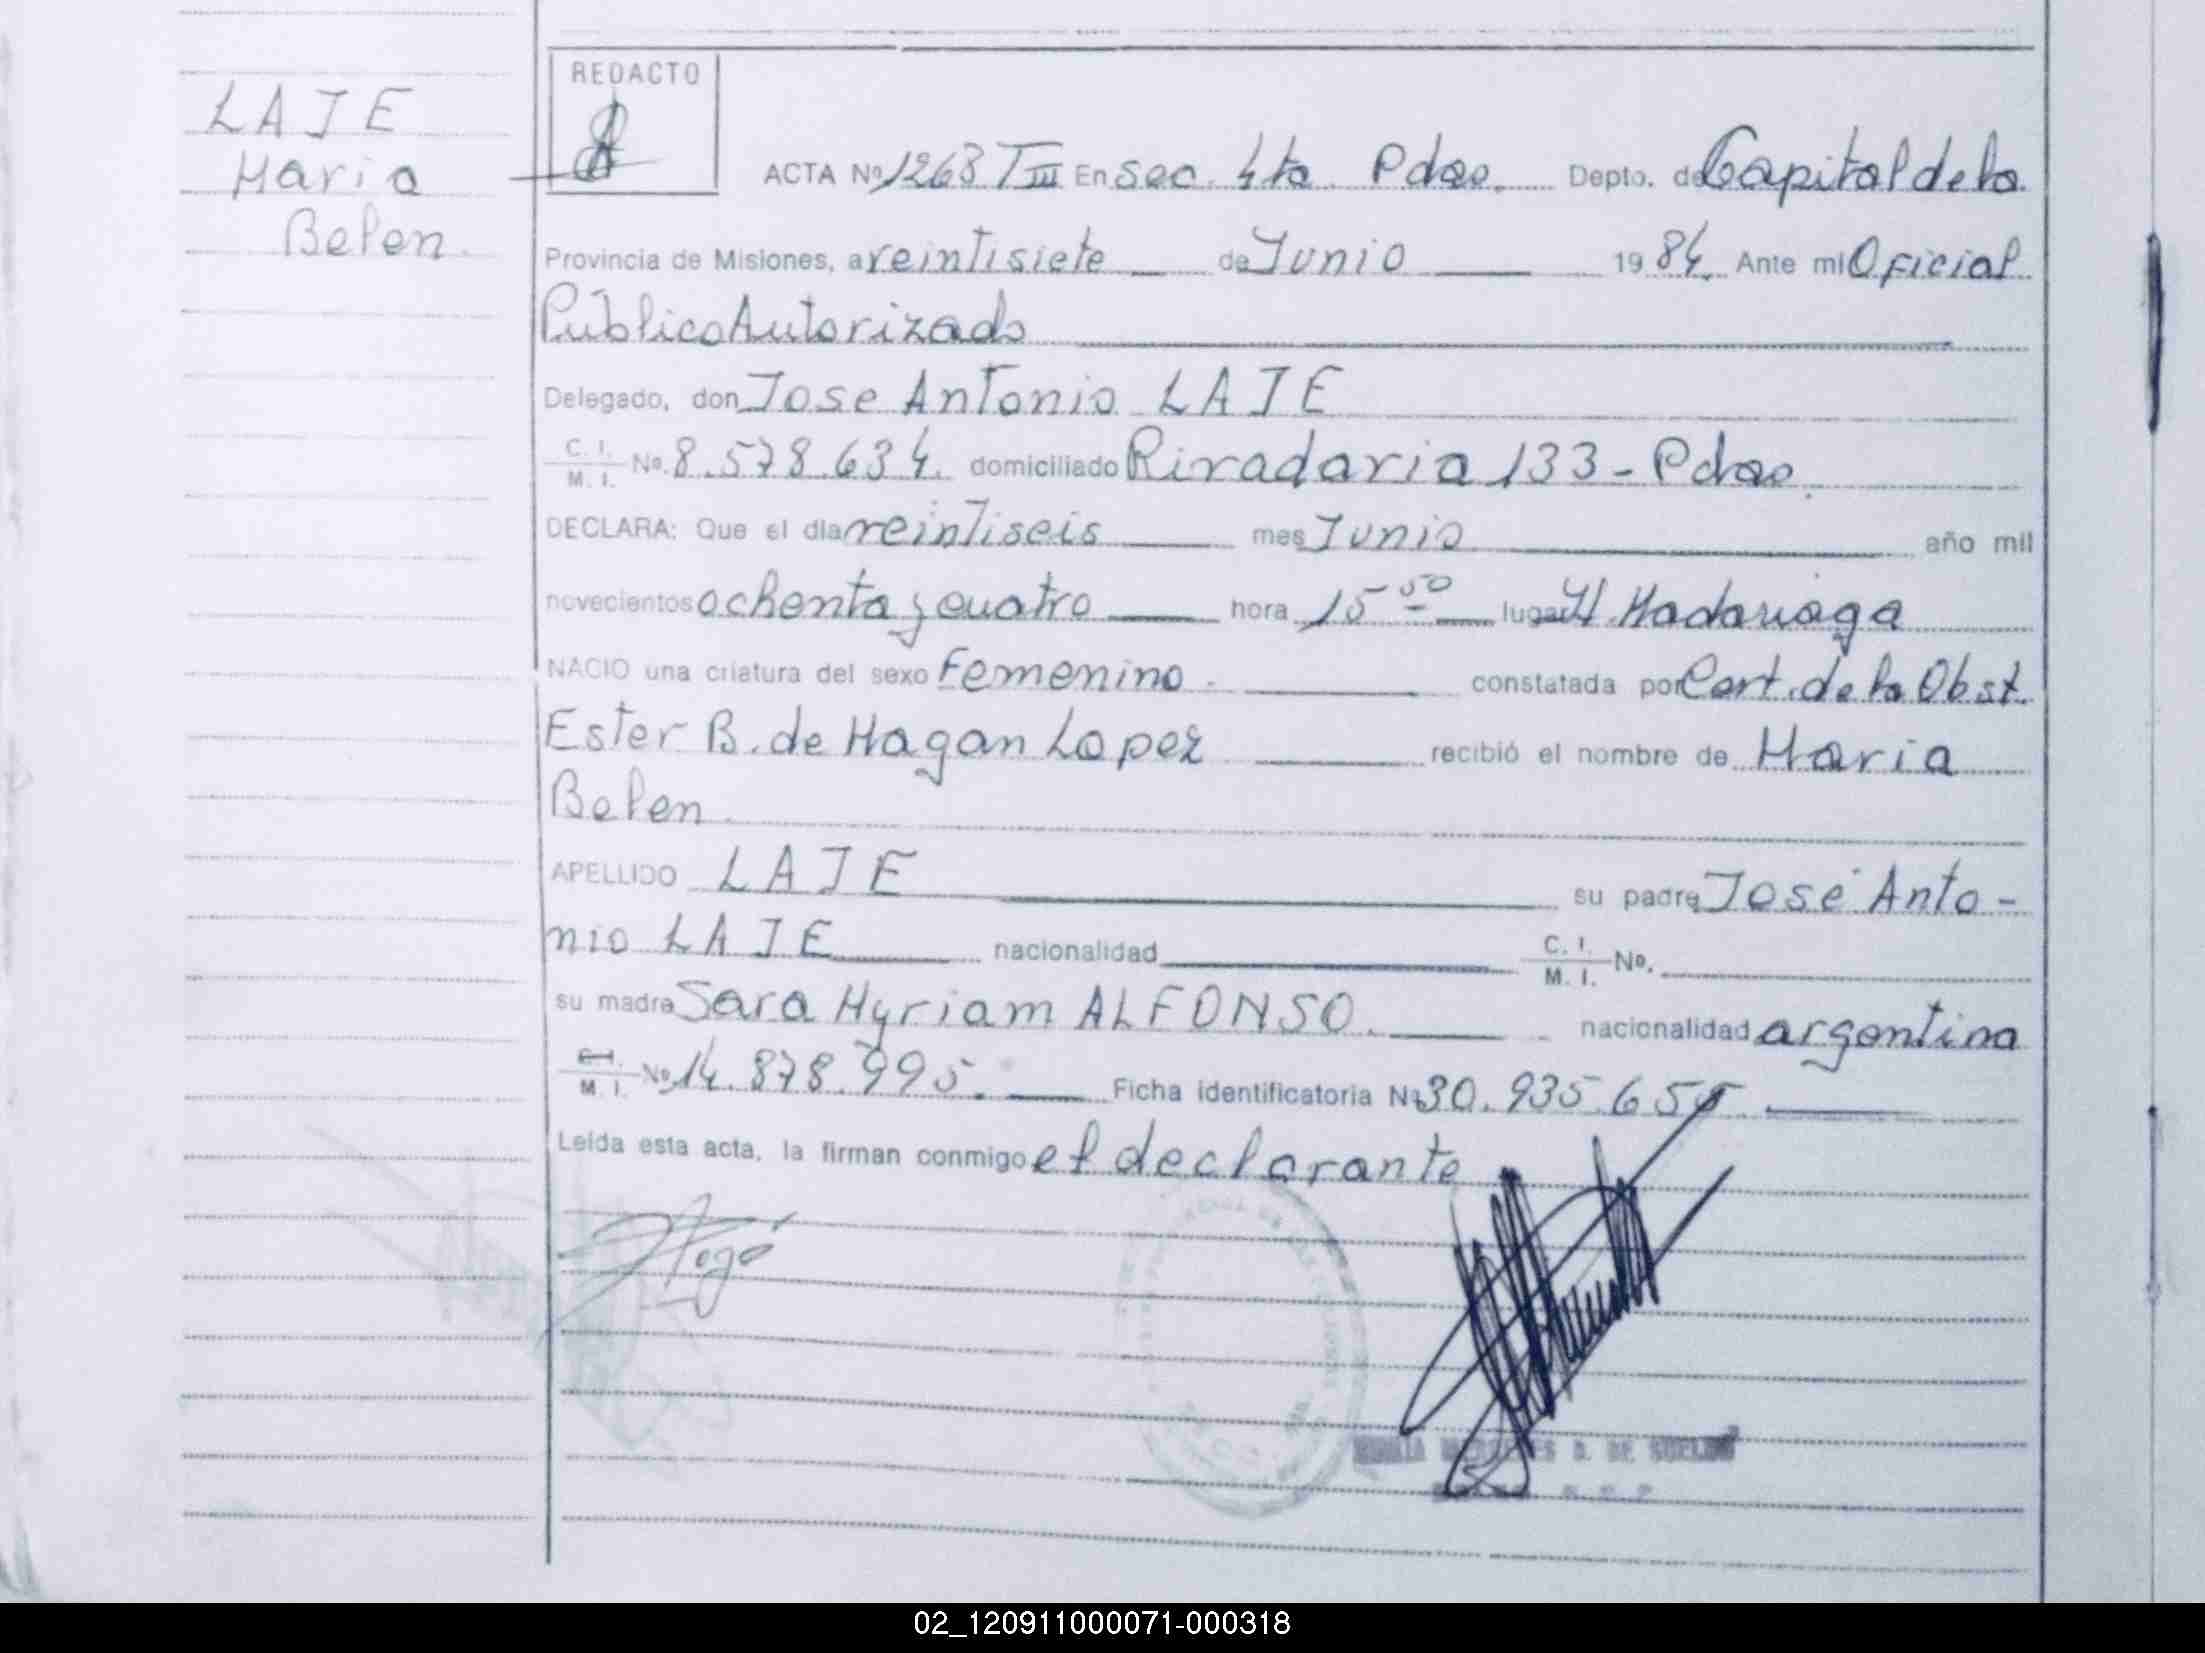 LAJE
Maria
Belen.
REDACTO
ACTA Nº 1263 TIII En sec. 4ta Pdas. Depto. de Capital de la
Provincia de Misiones, a veintisiete de Junio 19 84. Ante mi Oficial
Público Autorizado
Delegado, don Jose Antonio LAJE
C. I. / M. I. Nº. 8.578.634. domiciliado Rivadavia 133 - Pdas.
DECLARA: Que el día veintiseis mes Junio año mil
novecientos ochenta y cuatro hora 15-50 lugar H. Madariaga
NACIO una criatura del sexo Femenino. constatada por Cert. de la Obst.
Ester B. de Hagan Lopez recibió el nombre de Maria
Belen.
APELLIDO LAJE su padre José Anto-
nio LAJE nacionalidad C. I. / M. I. Nº.
su madre Sara Myriam ALFONSO. nacionalidad argentina
C. I. / M. I. Nº 14.878.995. Ficha identificatoria Nº 30.935.655
Leída esta acta, la firman conmigo el declarante
D. DE
02_120911000071-000318